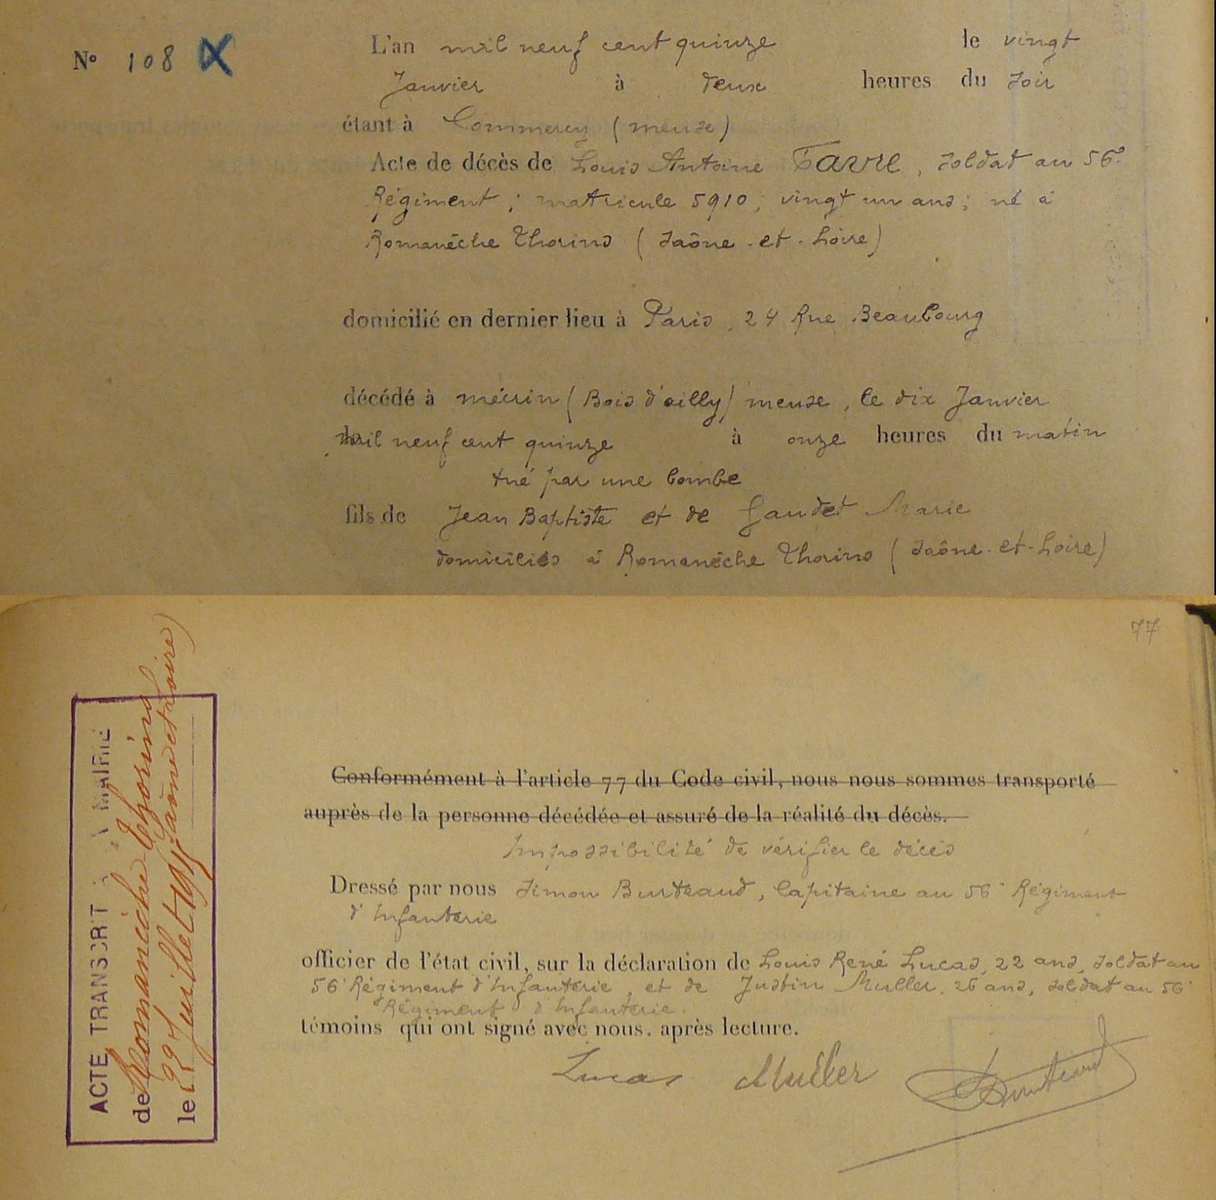 N° 108 X
L'an mil neuf cent quinze le vingt
Janvier à deux heures du soir
étant à Commercy (meuse)
Acte de décès de Louis Antoine Favre, soldat au 56e
Régiment; matricule 5910; vingt un ans; né à
Romanèche Thorins (Saône-et-Loire)
domicilié en dernier lieu à Paris, 24 Rue Beaubourg
décédé à mécrin (Bois d'ailly) meuse, le dix Janvier
mil neuf cent quinze à onze heures du matin
tué par une bombe
fils de Jean Baptiste et de Gaudet Marie
domiciliés à Romanèche Thorins (Saône-et-Loire)
77
Conformément à l'article 77 du Code civil, nous nous sommes transporté
auprès de la personne décédée et assuré de la réalité du décès.
Impossibilité de vérifier le décès
Dressé par nous Simon Burteaud, Capitaine au 56e Régiment
d'Infanterie
officier de l'état civil, sur la déclaration de Louis René Lucas, 22 ans, soldat au
56e Régiment d'Infanterie, et de Justin Muller, 26 ans, soldat au 56e
Régiment d'Infanterie.
témoins qui ont signé avec nous, après lecture.
Lucas Muller Burteaud
ACTE TRANSCRIT A MAIRIE
de Romanèche Thorins
(Saône et Loire)
le 29 Juillet 1915